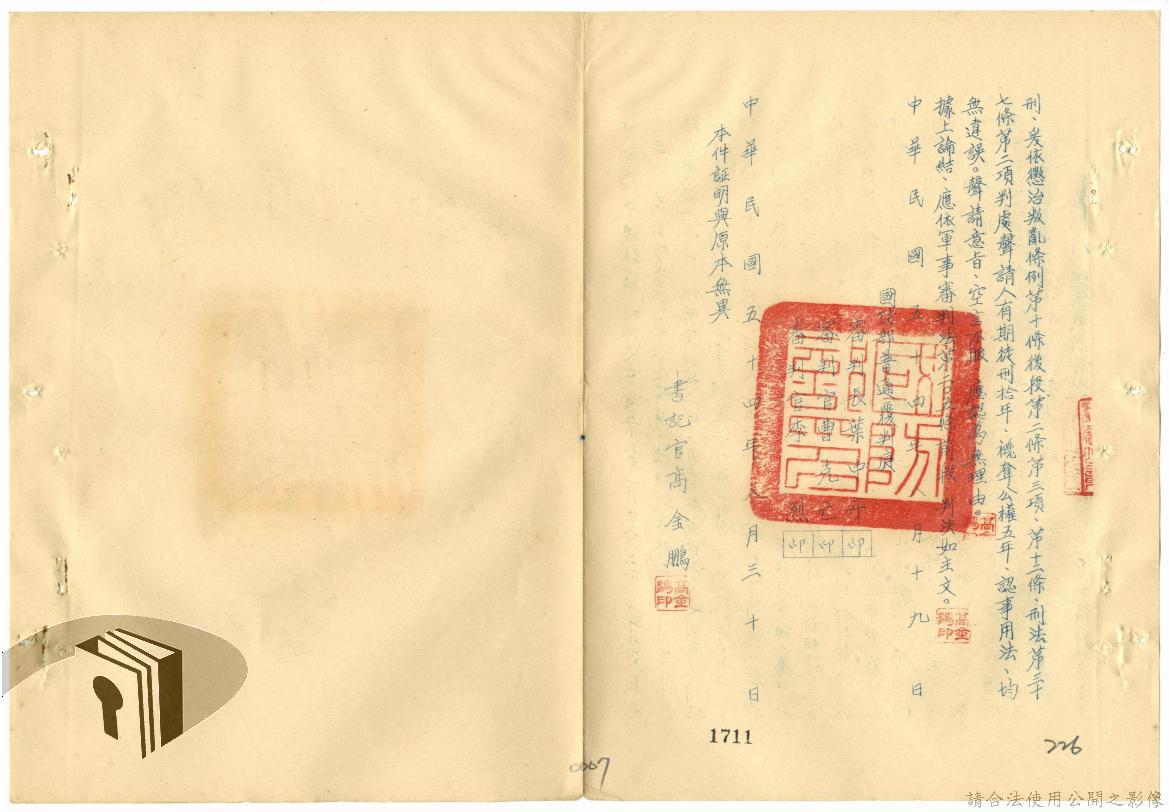 刑、爰依懲治叛亂條例第十條後段第二條第三項、第十二條、刑法第三十
七條第二項判處聲請人有期徒刑拾年、褫奪公權五年、認事用法、均
無違誤。聲請意旨、空言不服、應認為無理由。
據上論結、應依軍事審判法第二〇五條前段判決如主文。
中華民國五十四年八月十九日
國防部普通覆判庭
審判長葉中 印
審判官曹克 印
審判官李 烈 印
中華民國五十四年八月三十日
本件証明與原本無異
書記官高金鵬
高金鵬印
高金鵬印
1711
226
0007
請合法使用公開之影像